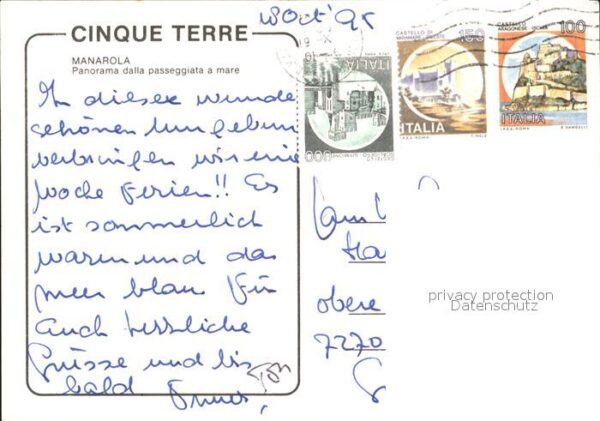 18 Oct' 95
CINQUE TERRE
MANAROLA
Panorama dalla passeggiata a mare
In dieser wunder
schönen Umgebung
verbringen wir eine
Woche Ferien!! Es
ist sommerlich
warm und das
Meer blau Für
Auch herzliche
Grüsse und bis
bald
CASTELLO DI
MIRAMARE TRIESTE
150
ITALIA
I.P.Z.S. ROMA
CASTELLO
ARAGONESE ISCHIA
100
ITALIA
I.P.Z.S. ROMA
E. VANGELLI
ITALIA
obere
7270
privacy protection
Datenschutz